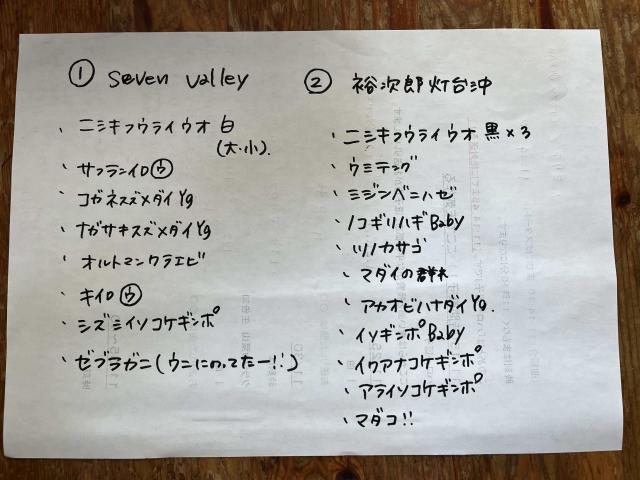 ① Seven Valley
・ニシキフウライウオ 白
(大・小).
・サフランイロ㋒
・コガネスズメダイYg
・ナガサキスズメダイYg
・オルトマンワラエビ
・キイロ㋒
・シズミイソコケギンポ
・ゼブラガニ(ウニにのってたー!!)
② 裕次郎灯台沖
・ニシキフウライウオ 黒×3
・ウミテング
・ミジンベニハゼ
・ノコギリハギBaby
・ツノカサゴ
・マダイの群れ
・アカオビハナダイYg.
・イソギンポBaby
・イワアナコケギンポ
・アライソコケギンポ
・マダコ!!